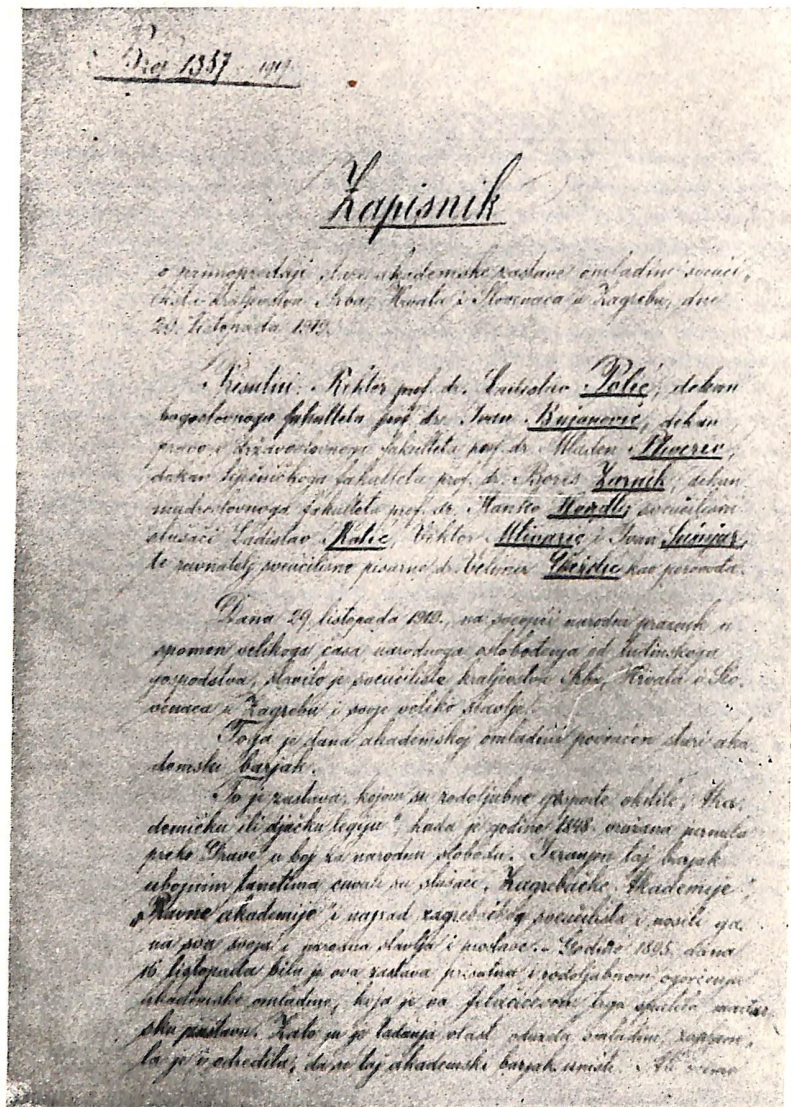 Broj 1357 - 1919.
Zapisnik
o primopredaji akademske zastave omladini sveuči-
lišta kraljevstva Srba, Hrvata i Slovenaca u Zagrebu, dne
29. listopada 1919.
Prisutni: Rektor prof. dr. Ladislav Polić, dekan
bogoslovnoga fakulteta prof. dr. Ivan Bujanović, dekan
pravo i državoslovnoga fakulteta prof. dr. Mladen
dekan liječničkoga fakulteta prof. dr. Boris Zarnik, dekan
mudroslovnoga fakulteta prof. dr. Stanko Hondl, sveučilišni
slušači Ladislav Viktor Mlinarić i Ivan
te ravnatelj sveučilišne pisarne dr. Velimir kao perovođa.
Dana 29. listopada 1919., na svoopći narodni praznik u
spomen velikoga časa narodnoga oslobođenja od tuđinskoga
gospodstva, slavilo je sveučilište kraljevstva Srba, Hrvata i Slo-
venaca u Zagrebu i svoje veliko slavlje.
Toga je dana akademskoj omladini povraćen stari aka-
demski barjak.
To je zastava, kojom su rodoljubne gospođe okitile „Aka-
demičku ili djačku legiju", kada je godine 1848. oružana krenula
preko Drave u boj za narodnu slobodu. taj barjak
ubojnim tanetima čuvali su slušači „Zagrebačke Akademije",
„Pravne akademije" i napred zagrebačkog sveučilišta i nosili ga
na sva svoja i narodna slavlja i proslave. - Godine 1895. dana
16. listopada bila je ova zastava prisutna i rodoljubnom ogorčenju
akademske omladine, koja je na Jelačićevom trgu spalila madžar-
sku zastavu. Zato ju je tadanja vlast oduzela omladini,
la je i odredila, da se taj akademski barjak uništi. Ali